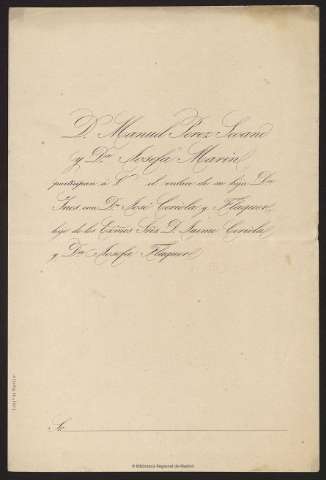 D. Manuel Pérez Seoane
y Dª Josefa Marín
participan á V. el enlace de su hija Dª
Ines, con D. José Ceriola y Flaquer,
hijo de los Exmos Sres D. Jaime Ceriola
y Dª Josefa Flaquer
Sr.
© Biblioteca Regional de Madrid